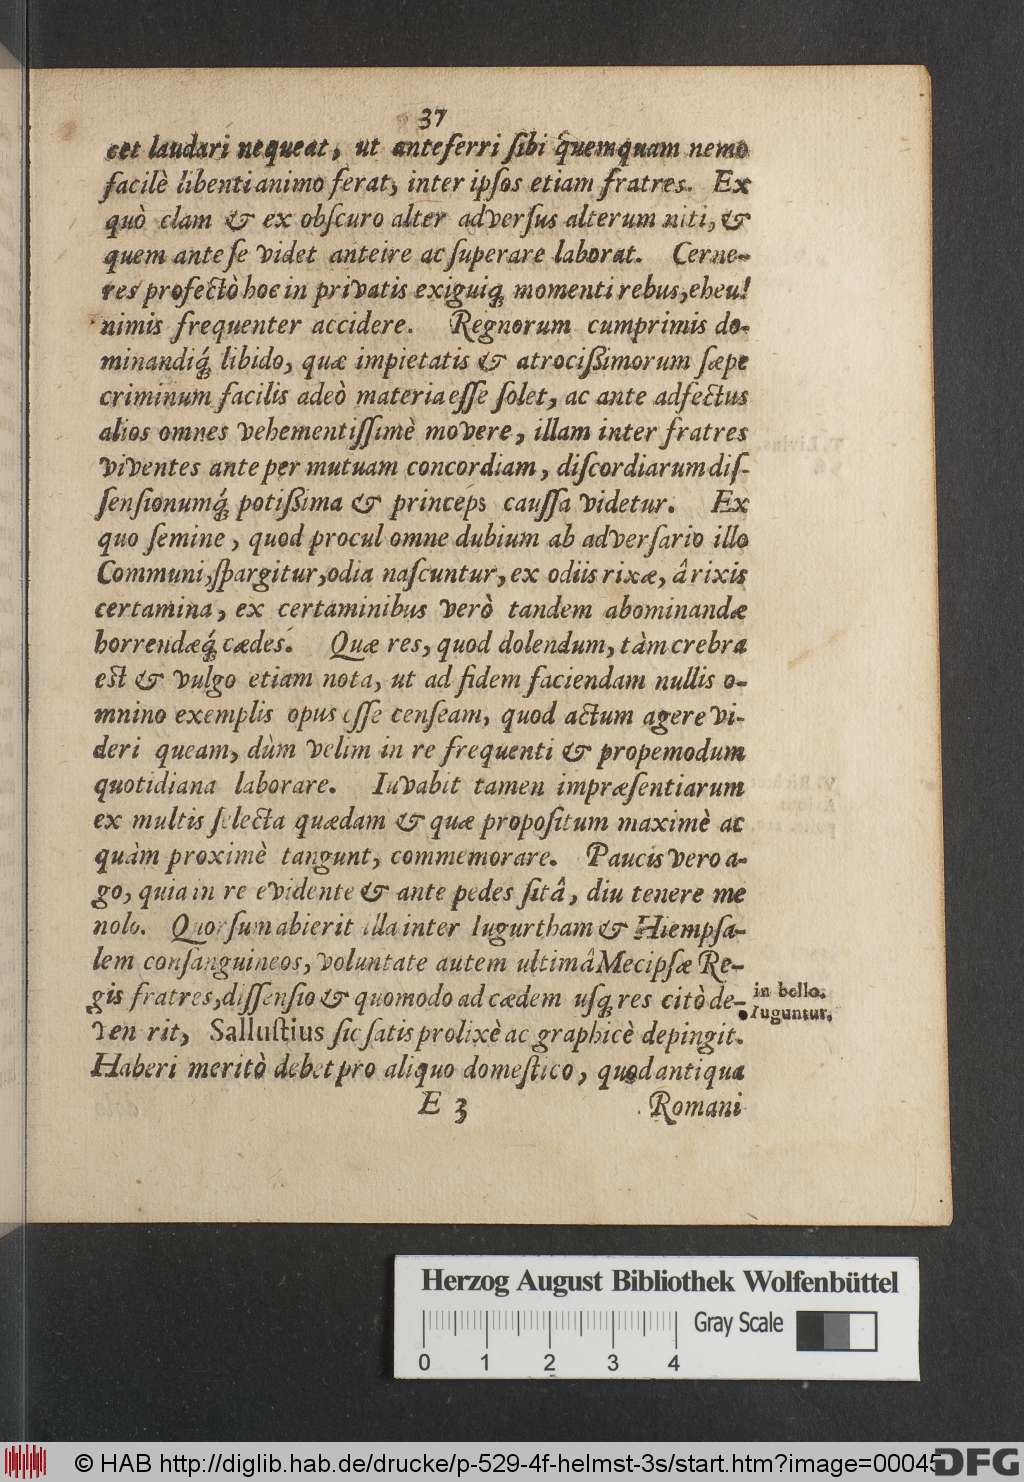 37
cet laudari nequeat, ut anteferri ſibi quemquam nemo
facilè libenti animo ferat, inter ipſos etiam fratres. Ex
quò clam & ex obſcuro alter adverſus alterum niti, &
quem ante ſe videt anteire ac ſuperare laborat. Cerne-
res profectò hoc in privatis exiguiq́; momenti rebus, eheu!
nimis frequenter accidere. Regnorum cumprimis do-
minandiq́; libido, quæ impietatis & atrocißimorum ſæpe
criminum facilis adeò materia eſſe ſolet, ac ante adfectus
alios omnes vehementiſſimè movere, illam inter fratres
viventes ante per mutuam concordiam, diſcordiarum diſ-
ſenſionumq́; potißima & princeps cauſſa videtur. Ex
quo ſemine, quod procul omne dubium ab adverſario illo
Communi, ſpargitur, odia naſcuntur, ex odiis rixæ, â rixis
certamina, ex certaminibus verò tandem abominandæ
horrendæq́; cædes. Quæ res, quod dolendum, tàm crebra
eſt & vulgo etiam nota, ut ad fidem faciendam nullis o-
mnino exemplis opus eſſe cenſeam, quod actum agere vi-
deri queam, dùm velim in re frequenti & propemodum
quotidiana laborare. Iuvabit tamen impræſentiarum
ex multis ſelecta quædam & quæ propoſitum maximè ac
quàm proximè tangunt, commemorare. Paucis vero a-
go, quia in re evidente & ante pedes ſitâ, diu tenere me
nolo. Quorſum abierit illa inter Iugurtham & Hiempſa-
lem conſanguineos, voluntate autem ultimâ Mecipſæ Re-
gis fratres, diſſenſio & quomodo ad cædem uſq; res citò de-
venerit, Salluſtius ſic ſatis prolixè ac graphicè depingit.
in bello.
Iuguntur.
Haberi meritò debet pro aliquo domeſtico, quod antiqua
E 3 Romani
Herzog August Bibliothek Wolfenbüttel
Gray Scale
0 1 2 3 4
© HAB http://diglib.hab.de/drucke/p-529-4f-helmst-3s/start.htm?image=00045
DFG